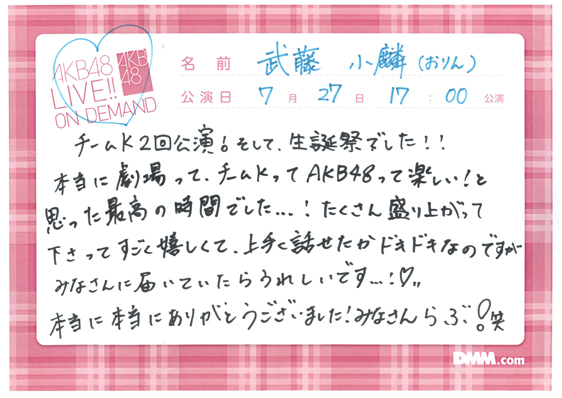 AKB48
LIVE!!
ON DEMAND
AKB
48
名前 武藤 小麟(おりん)
公演日 7月27日 17:00公演
チームK2回公演!そして、生誕祭でした!!
本当に劇場って、チームKってAKB48って楽しい!と
思った最高の時間でした...!たくさん盛り上がって
下さってすごく嬉しくて、上手く話せたかドキドキなのですが
みなさんに届いていたらうれしいです...!♡〟
本当に本当にありがとうございました!みなさんらぶ!笑
DMM.com